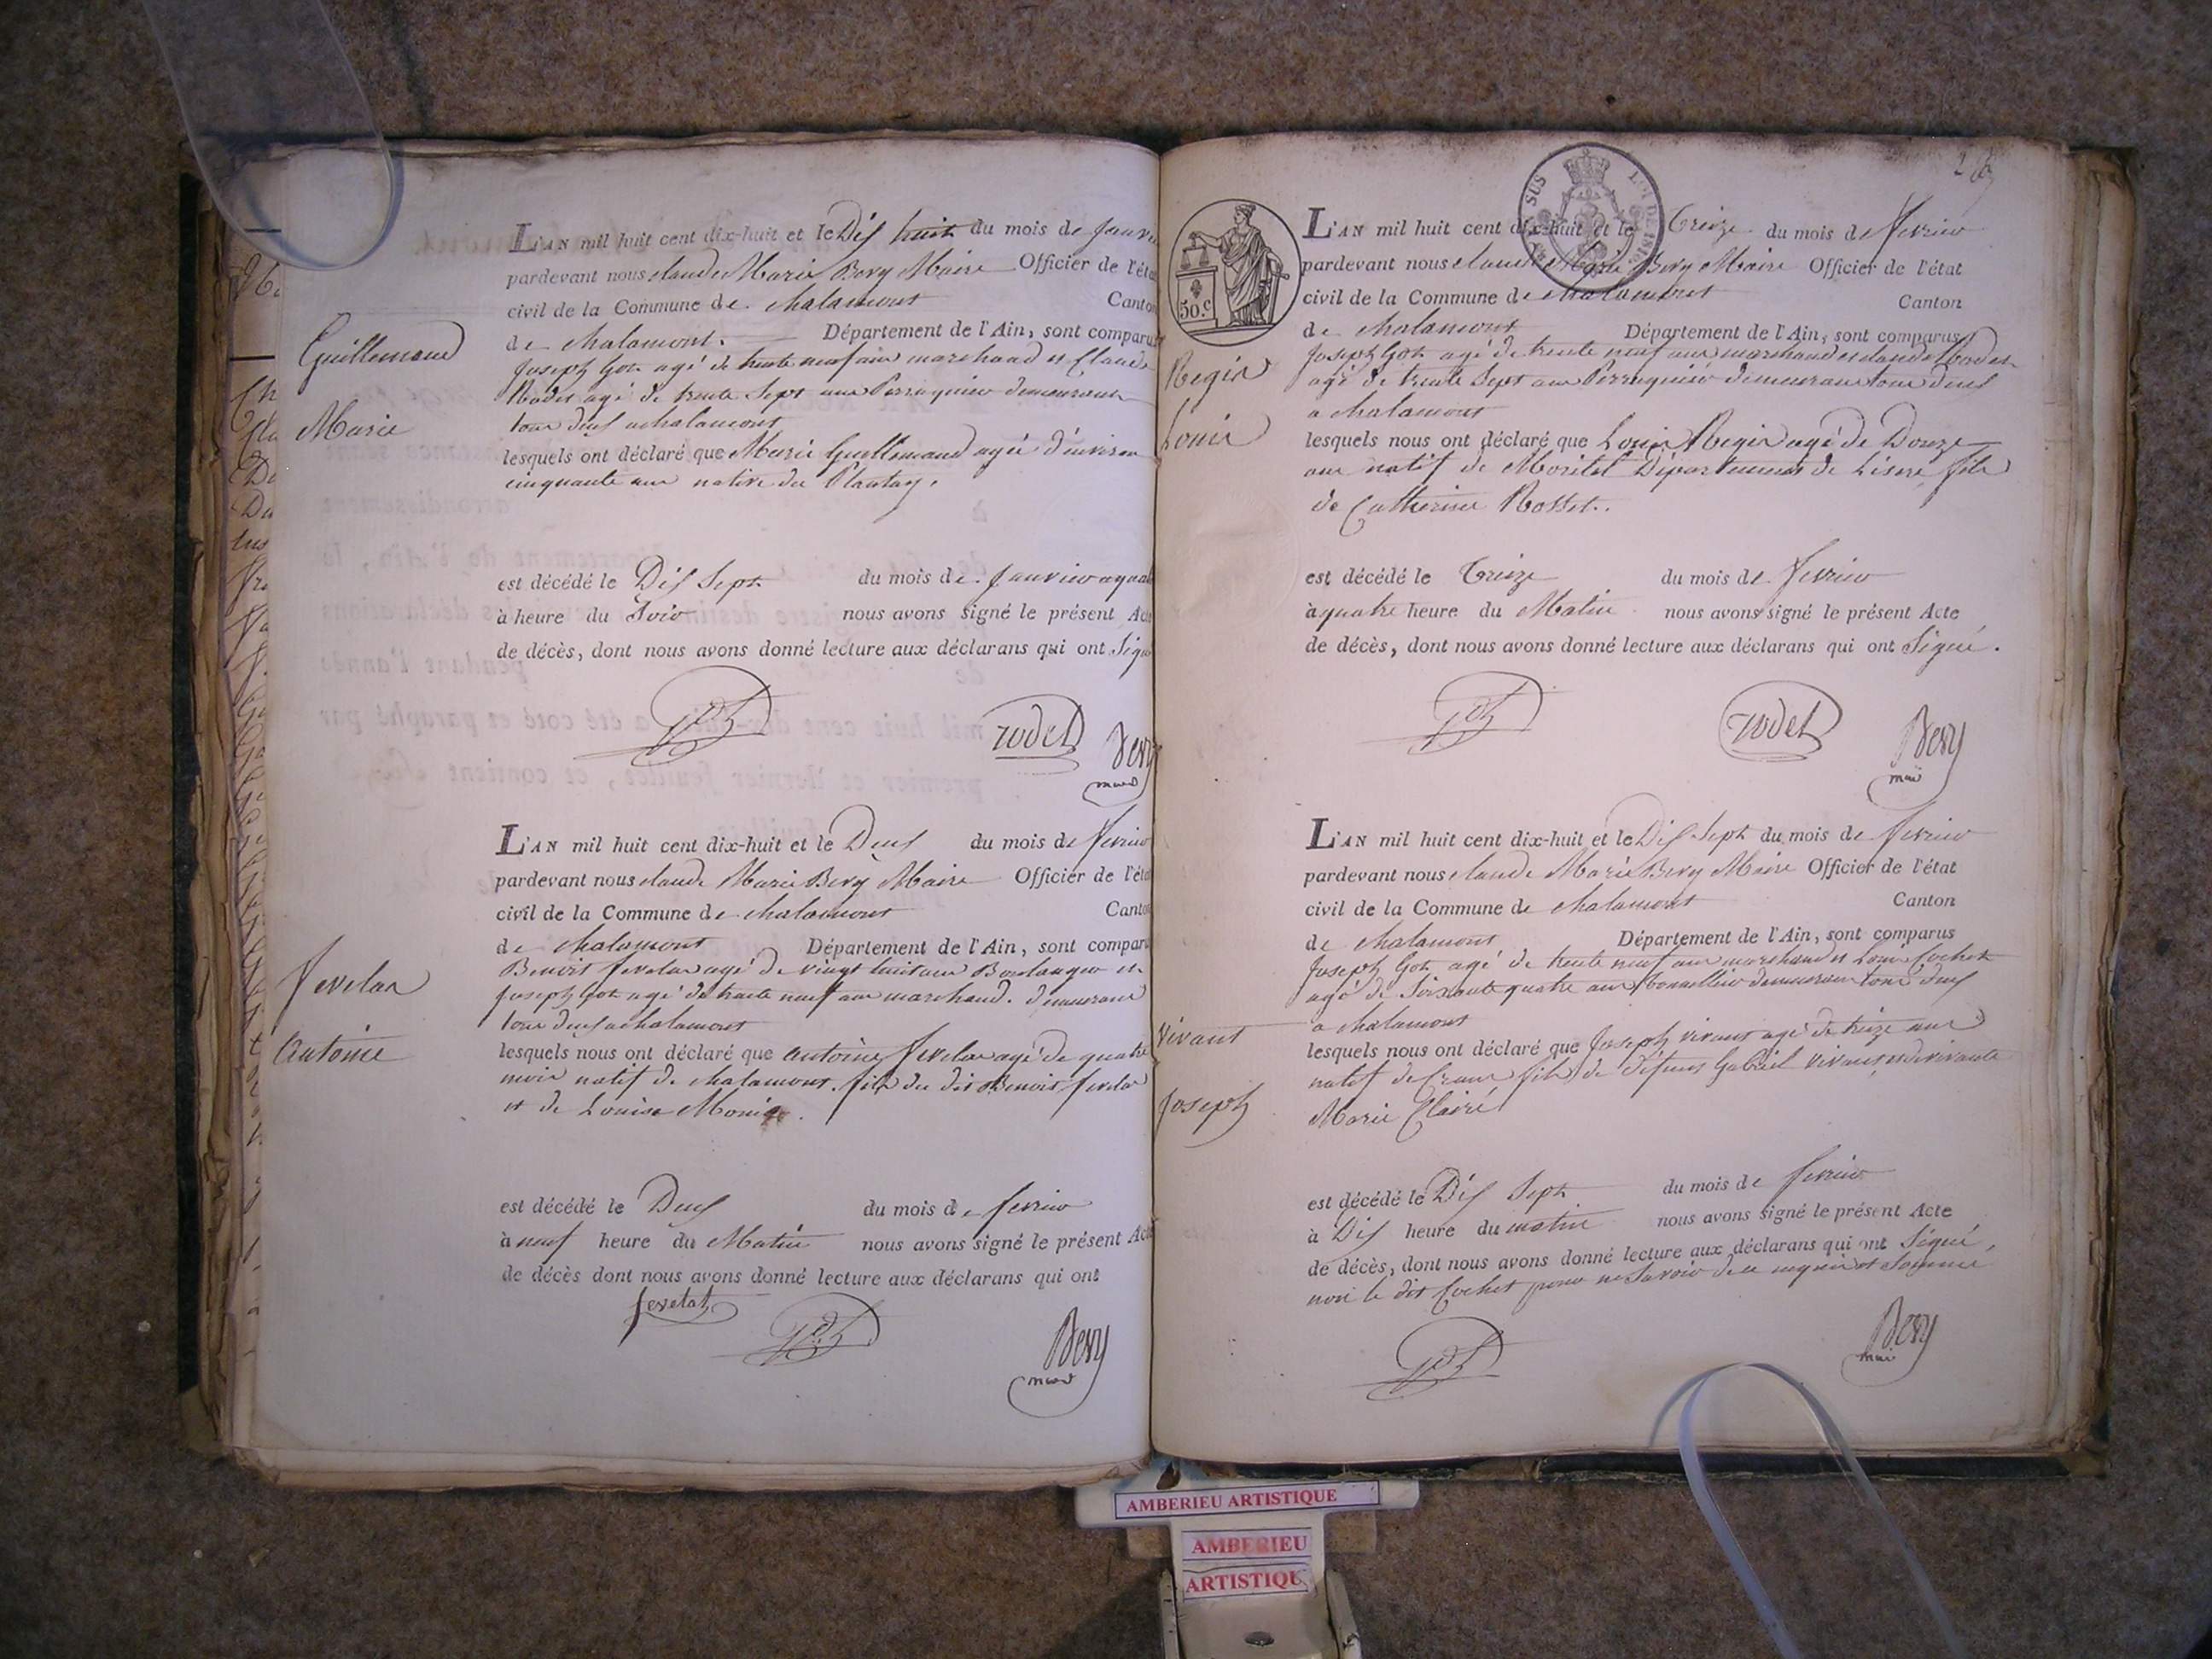 Guillemaud
Marie
L'AN mil huit cent dix-huit et le Dix huit du mois de Janvi
pardevant nous claude Marie Bevy Maire Officier de l'éta
civil de la Commune de chalamont Canton
de chalamont. Département de l'Ain, sont comparus
Joseph Got agé de trente neuf ans marchand et Claude
Rodet agé de trente Sept ans Perruquier demeurant
tous deux a chalamont
lesquels ont déclaré que Marie Guillemaud agée d'environ
cinquante ans native du Plantay.
est décédé le Dix Sept du mois de Janvier a quat
à heure du Soir nous avons signé le présent Act
de décès, dont nous avons donné lecture aux déclarans qui ont Signé
Got
rodet
Bevy
maire
fevelas
Antoine
L'AN mil huit cent dix-huit et le Deux du mois de fevrier
pardevant nous claude Marie Bevy Maire Officier de l'éta
civil de la Commune de chalamont Canton
de chalamont Département de l'Ain, sont compar
Benoit fevelas agé de vingt huit ans Boulanger et
Joseph Got agé de trente neuf ans marchand. demeurant
tous deux a chalamont
lesquels nous ont déclaré que Antoine fevelas agé de quatre
mois natif de chalamont. fils du dit Benoit fevelas
et de Louise
est décédé le Deux du mois de fevrier
à neuf heure du Matin nous avons signé le présent Acte
de décès dont nous avons donné lecture aux déclarans qui ont
fevelat
Got
Bevy
maire
50.c
Regis
Louis
L'AN mil huit cent dix-huit et le Treize du mois de fevrier
pardevant nous claude Marie Bevy Maire Officier de l'état
civil de la Commune de chalamont Canton
de chalamont Département de l'Ain, sont comparus
Joseph Got agé de trente neuf ans marchand et claude Rodet
agé de trente Sept ans Perruquier demeurant tous deux
a chalamont
lesquels nous ont déclaré que Louis Regis agé de Douze
ans natif de Département de Lisere fils
de Catherine Rosset.
est décédé le Treize du mois de fevrier
à quatre heure du Matin nous avons signé le présent Acte
de décès, dont nous avons donné lecture aux déclarans qui ont Signé.
Got
rodet
Bevy
maire
vivant
Joseph
L'AN mil huit cent dix-huit et le Dix Sept du mois de fevrier
pardevant nous claude Marie Bevy Maire Officier de l'état
civil de la Commune de chalamont Canton
de chalamont Département de l'Ain, sont comparus
Joseph Got agé de trente neuf ans marchand et Louis Cochet
agé de Soixante quatre ans tonnellier demeurant tous deux
a chalamont
lesquels nous ont déclaré que Joseph vivant agé de treize ans
natif de Crans fils de défunt Gabriel vivant et de vivante
Marie Claire
est décédé le Dix Sept du mois de fevrier
à Dix heure du matin nous avons signé le présent Acte
de décès, dont nous avons donné lecture aux déclarans qui ont Signé,
non le dit Cochet pour ne Savoir de ce enquis et Sommé
Got
Bevy
maire
AMBERIEU ARTISTIQUE
AMBERIEU
ARTISTIQU